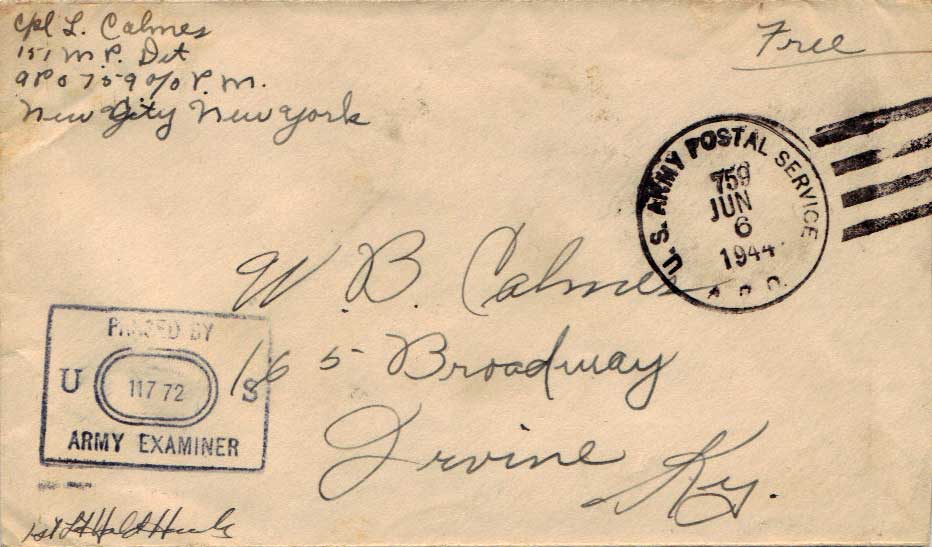 Cpl L. Calmes
151 M.P. Det
APO 759 c/o P.M.
New York City New York
Free
U.S. ARMY POSTAL SERVICE
759
JUN
6
1944
A.P.O.
W. B. Calmes
165 Broadway
Irvine Ky.
PASSED BY
U 11772 S
ARMY EXAMINER
1st Lt